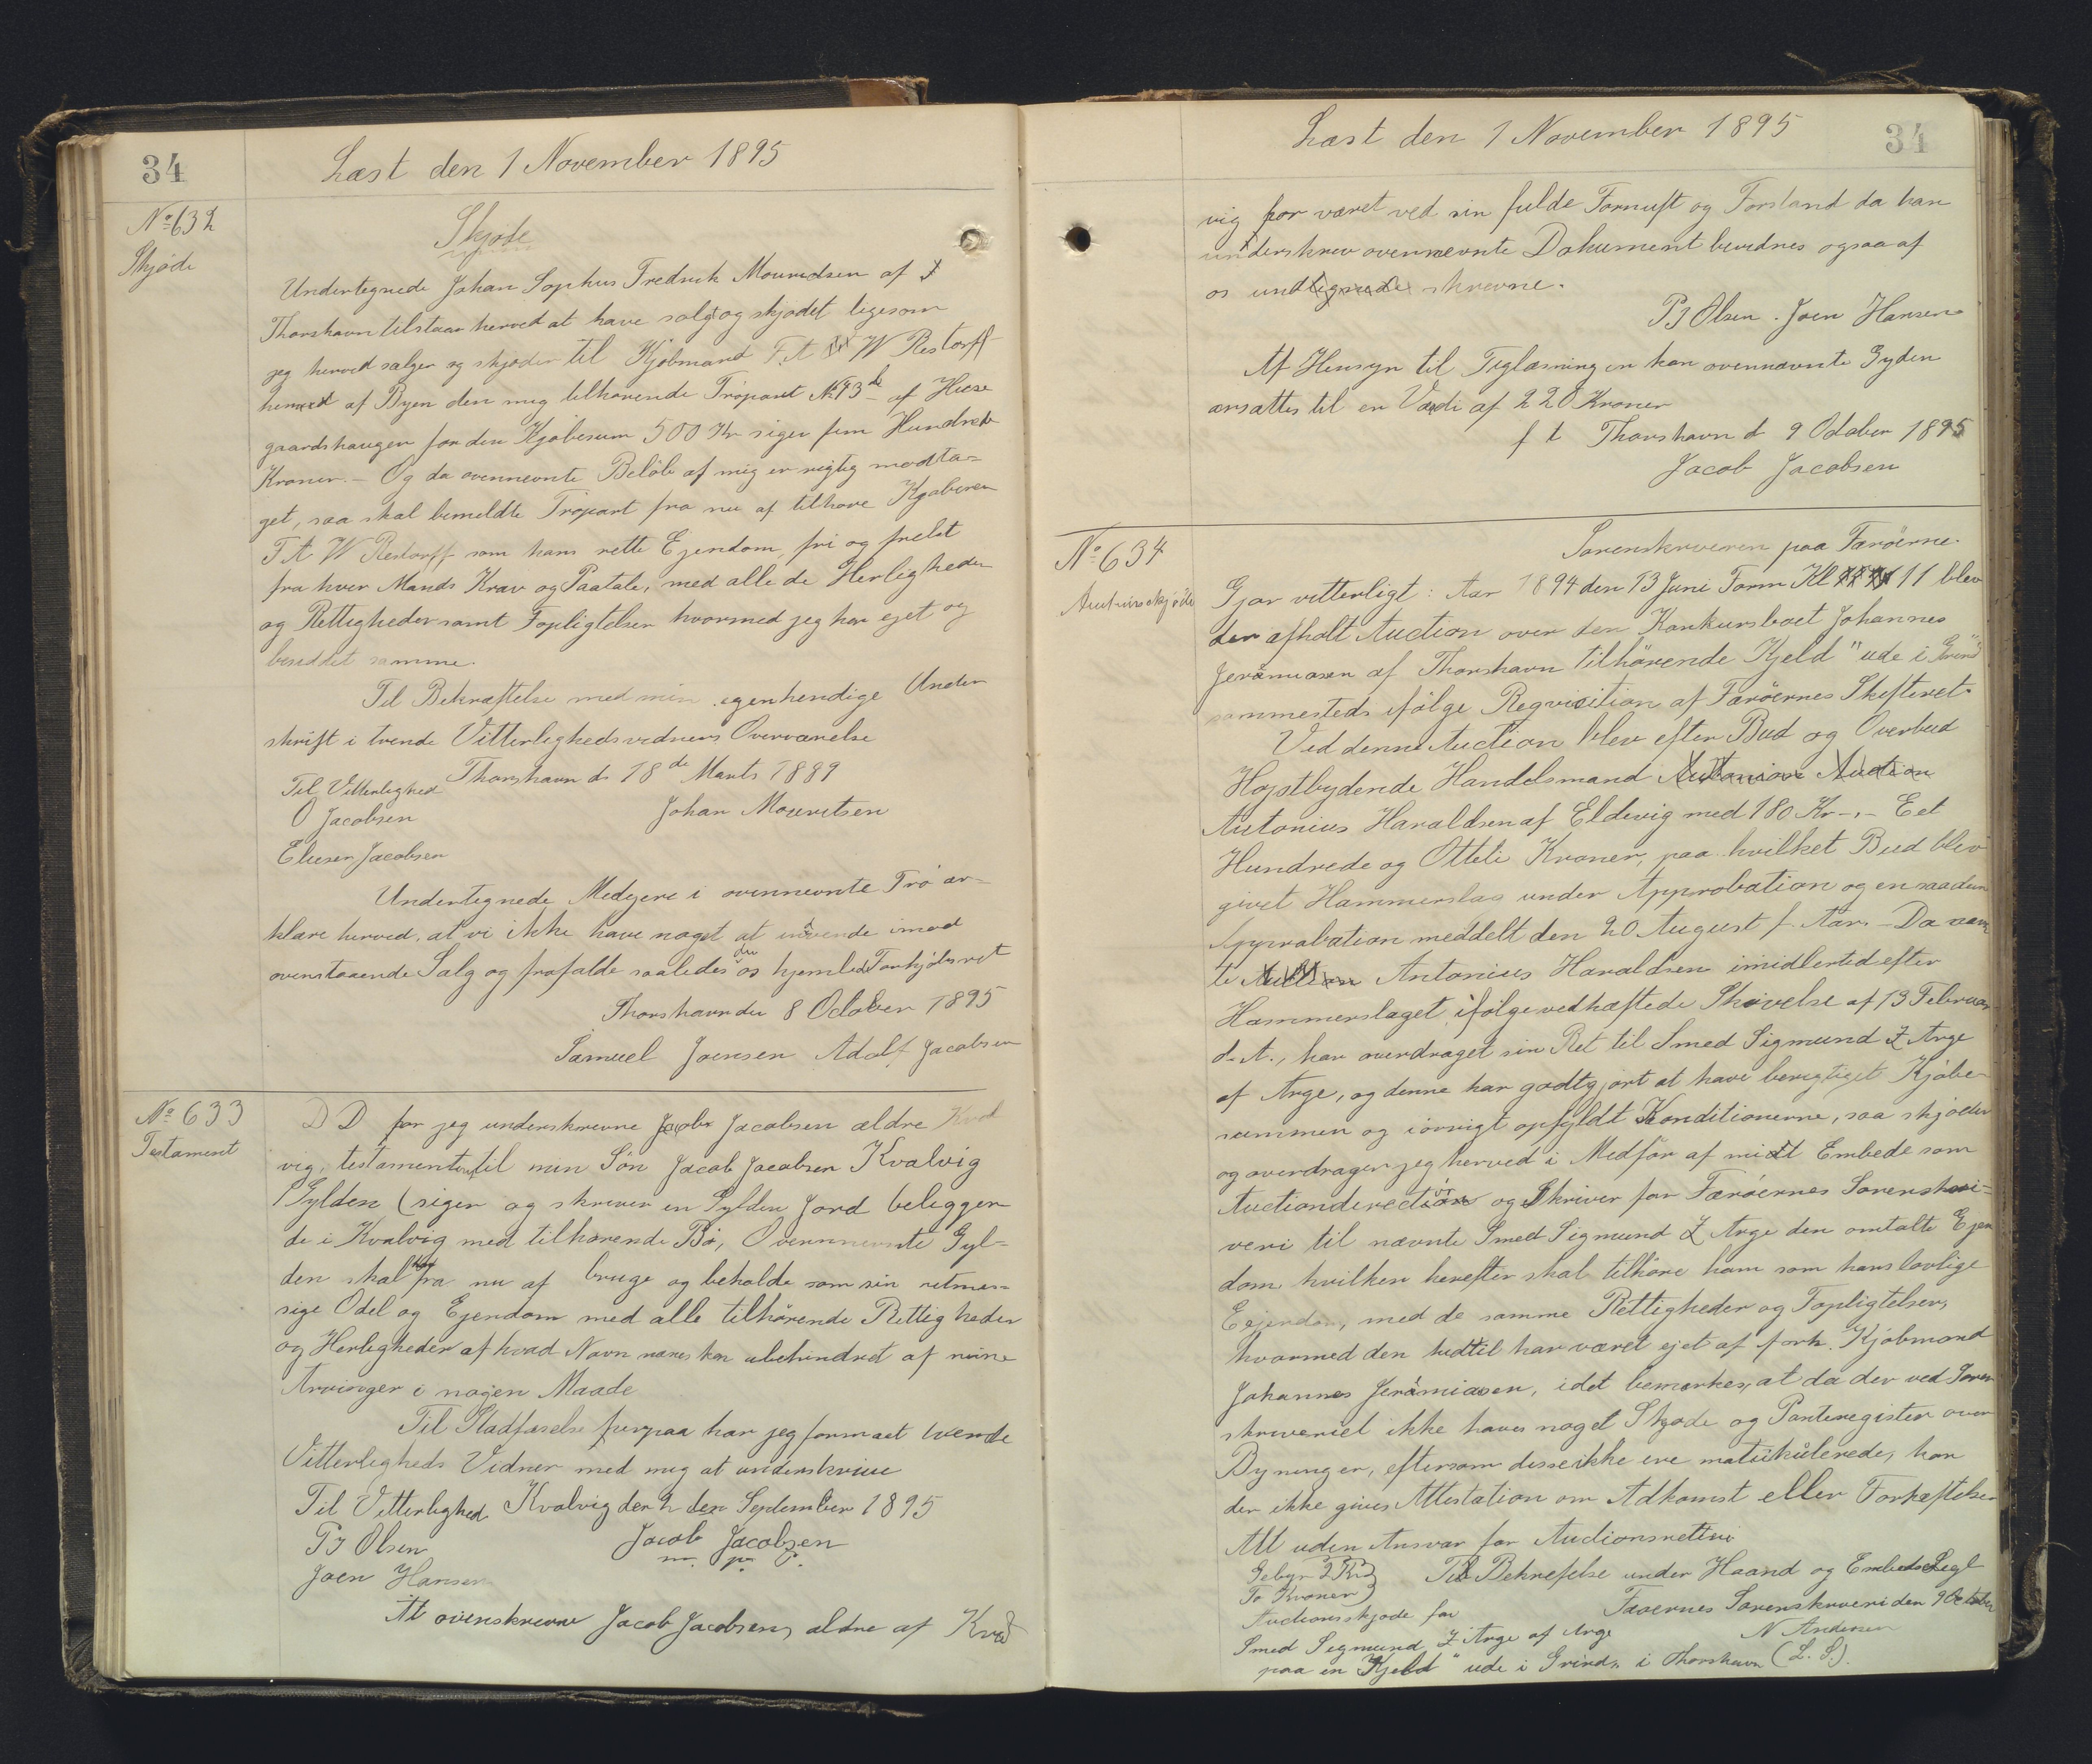 34
Læst den 1 November 1895
No 632
Skjøde
Skjøde
Undertegnede Johan Sophus Fredrik Mouridsen af
Thorshavn tilstaar herved at have solgt og skjødet ligesom
jeg herved sælger og skjøder til Kjøbmand F. A W Restorff
af Byen den mig tilhørende Trøpart No 43 de af Huse
gaardshaugen for den Kjøbesum 500 Kr siger fem Hundrede
Kroner. – Og da ovennevnte Beløb af mig er rigtig modta=
get, saa skal bemeldte Trøpart fra nu af tilhøre Kjøberen
F A W Restorff som hans rette Ejendom, fri og frelst
fra hver Mands Krav og Paatale, med alle de Herligheder
og Rettigheder samt Forpligtelser hvormed jeg har ejet og
besiddet samme.
Til Bekræftelse med min egenhendige Under
skrift i tvende Vitterlighedsvidners Overværelse
Thorshavn d. 18 de Marts 1889
Til Vitterlighed
O Jacobsen
Johan Mouritsen
Elieser Jacobsen
Undertegnede Medejere i ovennevnte Trø er=
klære herved, at vi ikke have noget at indvende imod
ovenstaaende Salg og frafalde saaledes den os hjemlede Forkjøbsret
Thorshavn den 8 October 1895
Samuel Joensen Adolf Jacobsen
No 633
Testament
D D for jeg underskrevne Jacob Jacobsen ældre Kval
vig, testamenterer til min Søn Jacob Jacobsen Kvalvig
1 Gylden (siger og skriver en Gylden Jord beliggen
de i Kvalvig med tilhørende Bø, Ovennevnte Gyl=
den skal han fra nu af bruge og beholde som sin retmes=
sige Odel og Ejendom med alle tilhørende Rettigheder
og Herligheder af hvad Navn nævnes kan ubehindret af mine
Arvinger i nogen Maade
Til Stadfæstelse herpaa har jeg formaaet tvende
Vitterligheds Vidner med mig at underskrive
Til Vitterlighed Kvalvig den 2 den September 1895
P J Olsen
Jacob Jacobsen
m. p. P.
Joen Hansen
At ovenskrevne Jacob Jacobsen, ældre af Kval
Læst den 1 November 1895
34
vig har været ved sin fulde Fornuft og Forstand da han
underskrev ovennævnte Dokument bevidnes ogsaa af
os undtegnede skrevne.
P J Olsen. Joen Hansen
Af Hensyn til Tinglæsningen kan ovennævnte Gylden
ansættes til en Værdi af 220 Kroner
f t Thorshavn d 9 October 1895
Jacob Jacobsen
No 634
Auctionsskjøde
Sorenskriveren paa Færöerne.
Gjør vitterligt: Aar 1894 den 13 Juni Form Kl 11 blev
der afholt Auction over den Konkursboet Johannes
Jerämiasen af Thorshavn tilhörende Kjeld "ude i Grind"
sammesteds ifølge Reqvisition af Færöernes Skifteret.
Ved denne Auction blev efter Bud og Overbud
Højstbydende Handelsmand Auction
Antonius Haraldsen af Eldevig med 180 Kr –.– Eet
Hundrede og Otteti Kroner, paa hvilket Bud blev
givet Hammerslag under Approbation og en saadan
Approbation meddelt den 20 August f. Aar. – Da nævn
te Auction Antonius Haraldsen imidlertid efter
Hammerslaget ifølge vedhæftede Skrivelse af 13 Februar
d. A., har overdraget sin Ret til Smed Sigmund Z Arge
af Arge, og denne har godtgjort at have berigtiget Kjøbe
summen og iövrigt opfyldt Konditionerne, saa skjøder
og overdrager jeg herved i Medfør af mit Embede som
Auctiondirectör og Skriver for Færöernes Sorenskri=
veri til nævnte Smed Sigmund Z Arge den omtalte Ejen
dom hvilken herefter skal tilhøre ham som hans lovlige
Eejendom, med de samme Rettigheder og Forpligtelser,
hvormed den hidtil har været ejet af forh. Kjøbmand
Johannes Jerämiasen, idet bemerkes, at da der ved Soren
skriveriet ikke haves noget Skjøde og Panteregister over
Bygninger, eftersom disse ikke ere matrikulerede, kan
der ikke gives Attestation om Adkomst eller Forhæftelser
Alt uden Ansvar for Auctionsretten
Gebyr 2 Kr
To Kroner
Til Bekreftelse under Haand og Embedssegl
Færøernes Sorenskriveri den 9 October
Auctionsskjøde for
Smed Sigmund Z Arge af Arge
N Andersen
paa en Kjeld "ude i Grind" i Thorshavn (L. S.).